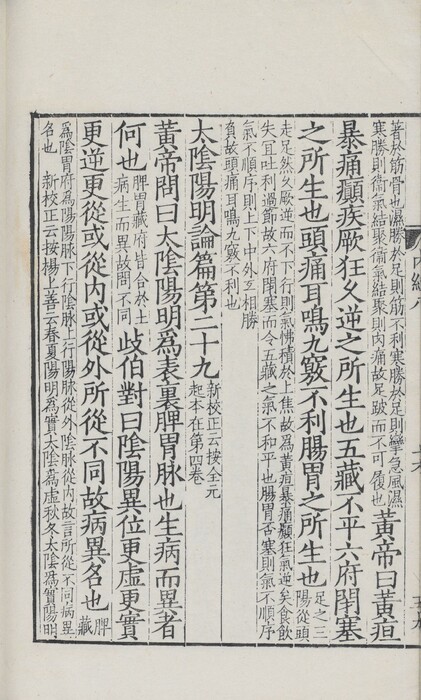 著於筋骨也濕勝於足則筋不利寒勝於足則攣急風濕
寒勝則衛氣結聚衛氣結聚則肉痛故足跛而不可履也
黃帝曰黃疸
暴痛癲疾厥狂久逆之所生也五藏不平六府閉塞
之所生也頭痛耳鳴九竅不利腸胃之所生也
足之三
陽從頭
走足然久厥逆而不下行則氣怫積於上焦故為黃疸暴痛癲狂氣逆矣食飲
失宜吐利過節故六府閉塞而令五藏之氣不和平也腸胃否塞則氣不順序
氣不順序則上下中外互相勝
負故頭痛耳鳴九竅不利也
太陰陽明論篇第二十九
新校正云按全元
起本在第四卷
黃帝問曰太陰陽明為表裏脾胃脉也生病而異者
何也
脾胃藏府皆合於土
病生而異故問不同
歧伯對曰陰陽異位更虛更實
更逆更從或從內或從外所從不同故病異名也
脾
藏
為陰胃府為陽陽脉下行陰脉上行陽脉從外陰脉從內故言所從不同病異
名也 新校正云按楊上善云春夏陽明為實太陰為虛秋冬太陰為實陽明